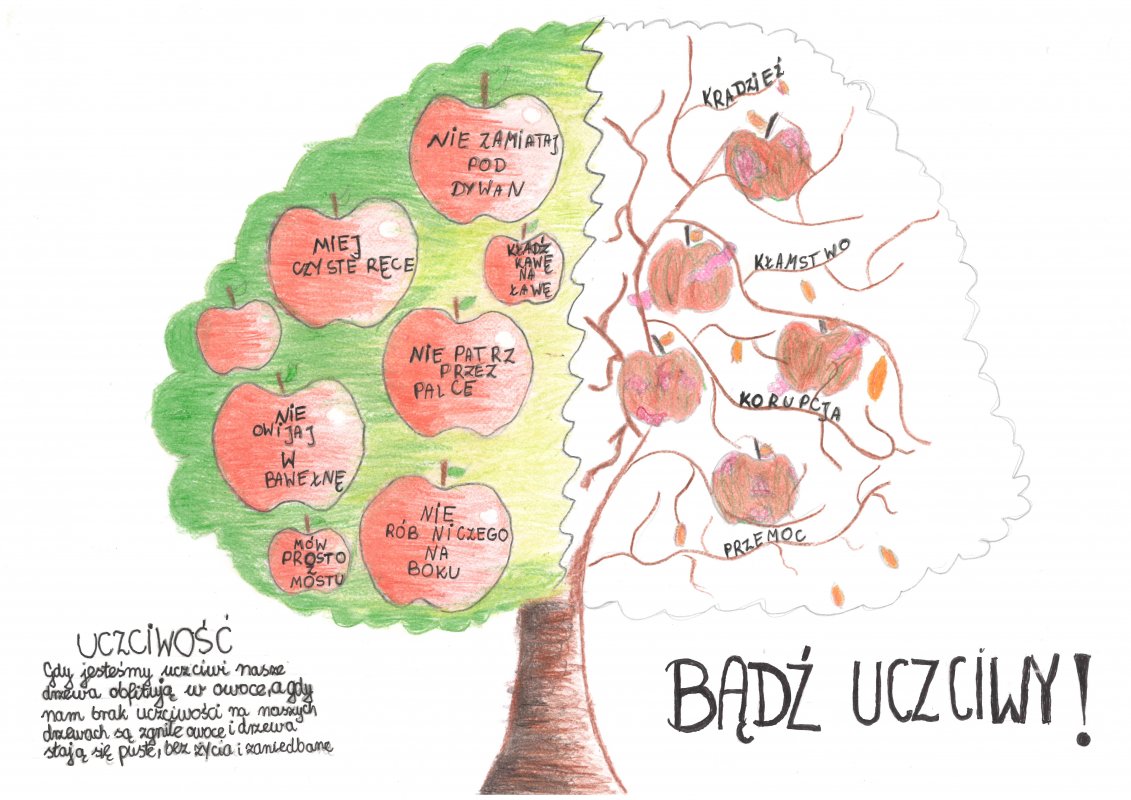 NIE ZAMIATAJ
POD
DYWAN
MIEJ
CZYSTE RĘCE
KŁADŹ
KAWĘ
NA
ŁAWĘ
NIE PATRZ
PRZEZ
PALCE
NIE
OWIJAJ
W
BAWEŁNĘ
NIE
RÓB NICZEGO
NA
BOKU
MÓW
PROSTO
Z
MOSTU
KRADZIEŹ
KŁAMSTWO
KORUPCJA
PRZEMOC
UCZCIWOŚĆ
Gdy jesteśmy uczciwi nasze
drzewa obfitują w owoce, a gdy
nam brak uczciwości na naszych
drzewach są zgniłe owoce i drzewa
stają się puste, bez życia i zaniedbane
BĄDŹ UCZCIWY!